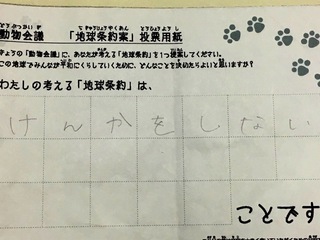 動物会議 「地球条約案」投票用紙
きょうの「動物会議」に、あなたが考える「地球条約」を1つ提案してください。
この地球でみんなが平和にくらしていくために、どんなことを決めたらよいと思いますか?
わたしの考える「地球条約」は、
けんかをしない
ことです